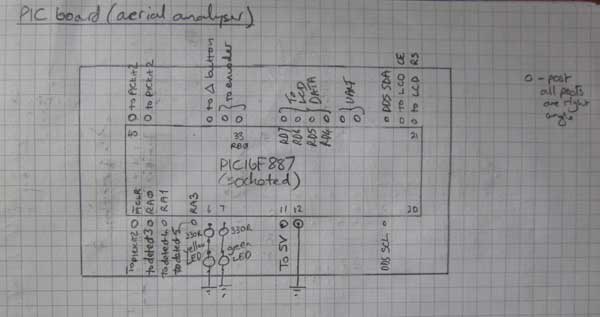 PIC board (aerial analyser)
to PICkit2
to PICkit2
to Δ button
to encoder
To LCD DATA
UART
DDS SDA
to LCD CE
to LCD RS
o - post
all posts
are right
33
RB0
RD7
RD6
RD5
RD4
21
PIC16F887
(socketed)
MCLR
RA0
RA1
RA3
6
7
11
12
20
To PICkit2
to detect 3
to detect 4
to detect 5
330R
330R
yellow
LED
green
LED
To 5V
DDS SCL